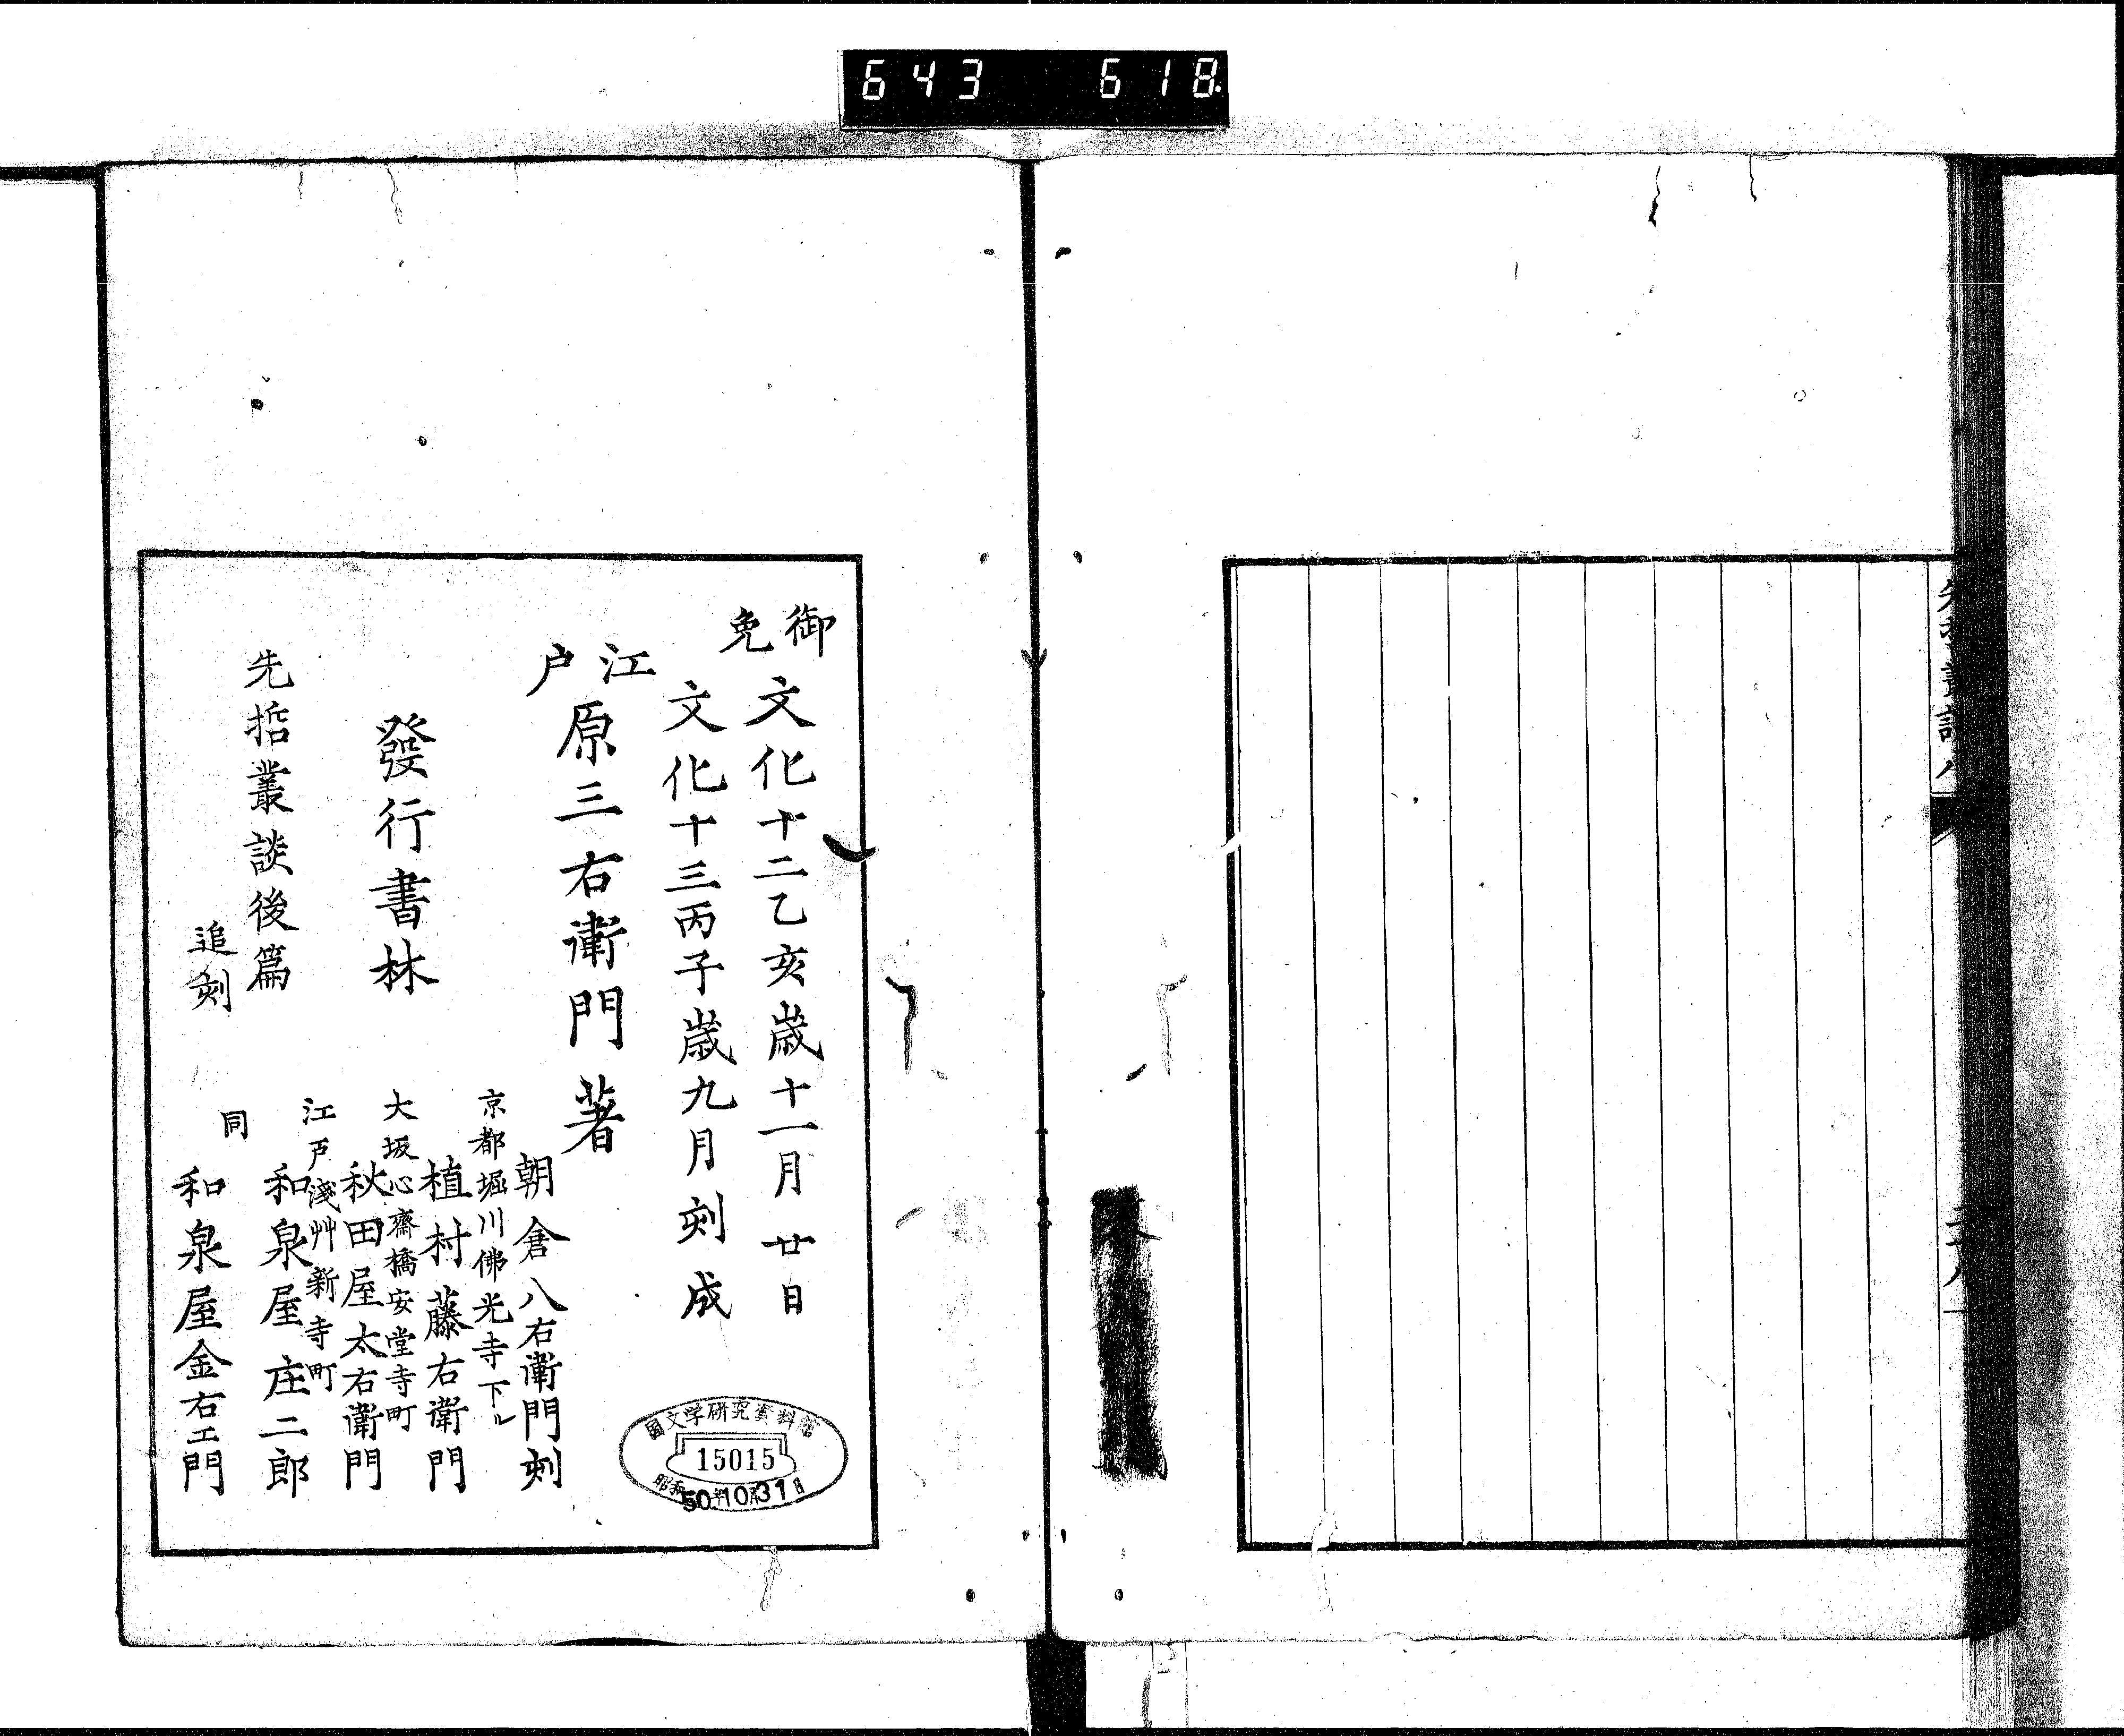 643 618
御免 文化十二乙亥歳十一月廿日
文化十三丙子歳九月刻成
江戸 原三右衛門著
朝倉八右衛門刻
發行書林
京都堀川佛光寺下ル
植村藤右衛門
大坂心齋橋安堂寺町
秋田屋太右衛門
江戸淺艸新寺町
和泉屋庄二郎
同
和泉屋金右エ門
先哲叢談後篇
追刻
國文学研究資料館
15015
昭和50年10月31日